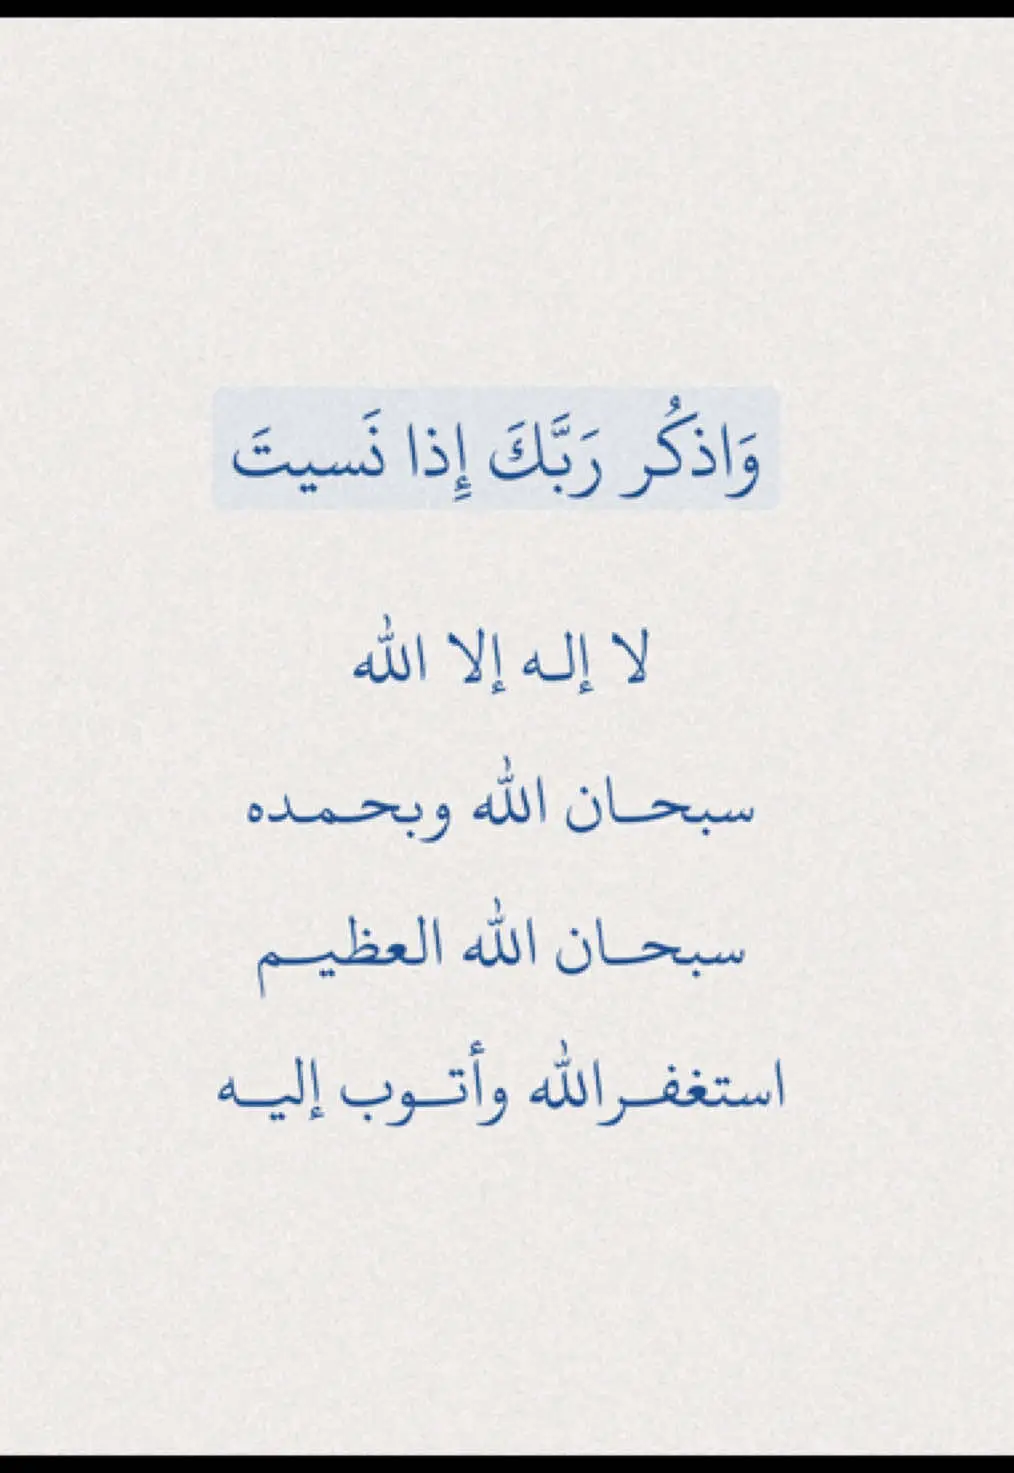 وَاذكُر رَبَّكَ إِذا نَسيتَ
لا إلـه إلا الله
سبحـان الله وبحـمـده
سبحـان الله العظيـم
استغفـرالله وأتـوب إليـه